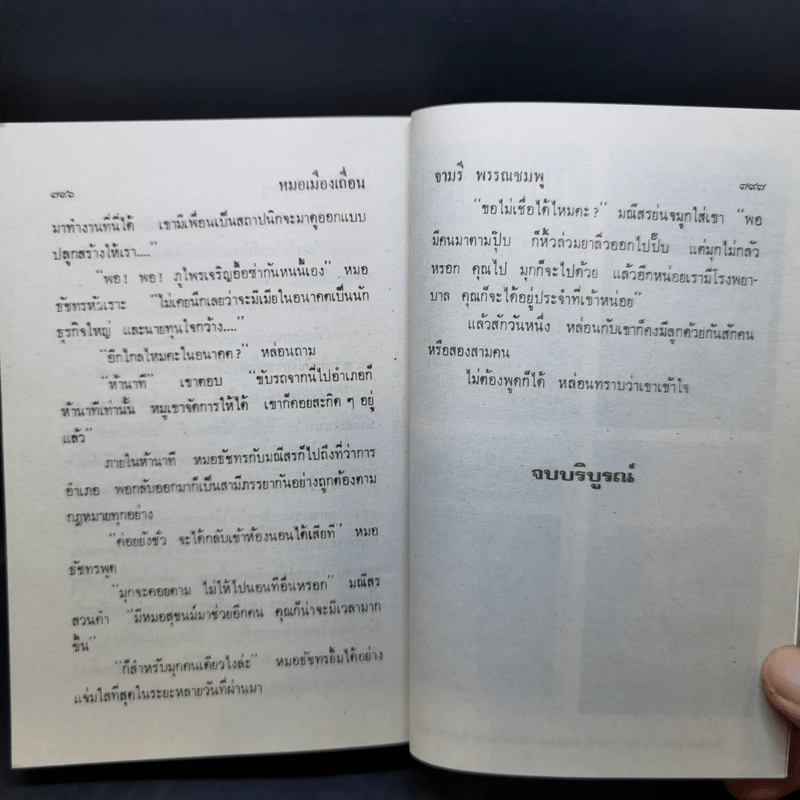 ๓๙๖ หมอเมืองเถื่อน
มาทำงานที่นี่ได้ เขามีเพื่อนเป็นสถาปนิกจะมาดูออกแบบ
ปลูกสร้างให้เรา...."
"พอ! พอ! ภูไพรเจริญอื้อซ่ากันหนนี้เอง" หมอ
ธัชทรหัวเราะ "ไม่เคยนึกเลยว่าจะมีเมียในอนาคตเป็นนัก
ธุรกิจใหญ่ และนายทุนใจกว้าง...."
"อีกไกลไหมคะในอนาคต?" หล่อนถาม
"ห้านาที" เขาตอบ "ขับรถจากนี่ไปอำเภอก็
ห้านาทีเท่านั้น หมูเขาจัดการให้ได้ เขาก็คอยสะกิด ๆ อยู่
แล้ว"
ภายในห้านาที หมอธัชทรกับมณีสรก็ไปถึงที่ว่าการ
อำเภอ พอกลับออกมาก็เป็นสามีภรรยากันอย่างถูกต้องตาม
กฎหมายทุกอย่าง
"ค่อยยังชั่ว จะได้กลับเข้าห้องนอนได้เสียที" หมอ
ธัชทรพูด
"มุกจะคอยตาม ไม่ให้ไปนอนที่อื่นหรอก" มณีสร
สวนคำ "มีหมอสุชนม์มาช่วยอีกคน คุณก็น่าจะมีเวลามาก
ขึ้น"
"ก็สำหรับมุกคนเดียวไงล่ะ" หมอธัชทรยิ้มได้อย่าง
แจ่มใสที่สุดในระยะหลายวันที่ผ่านมา
จามรี พรรณชมพู ๓๙๗
"ขอไม่เชื่อได้ไหมคะ?" มณีสรย่นจมูกใส่เขา "พอ
มีคนมาตามปุ๊บ ก็หิ้วล่วมยาลิ่วออกไปปั๊บ แต่มุกไม่กลัว
หรอก คุณไป มุกก็จะไปด้วย แล้วอีกหน่อยเรามีโรงพยา-
บาล คุณก็จะได้อยู่ประจำที่เข้าหน่อย"
แล้วสักวันหนึ่ง หล่อนกับเขาก็คงมีลูกด้วยกันสักคน
หรือสองสามคน
ไม่ต้องพูดก็ได้ หล่อนทราบว่าเขาเข้าใจ
จบบริบูรณ์